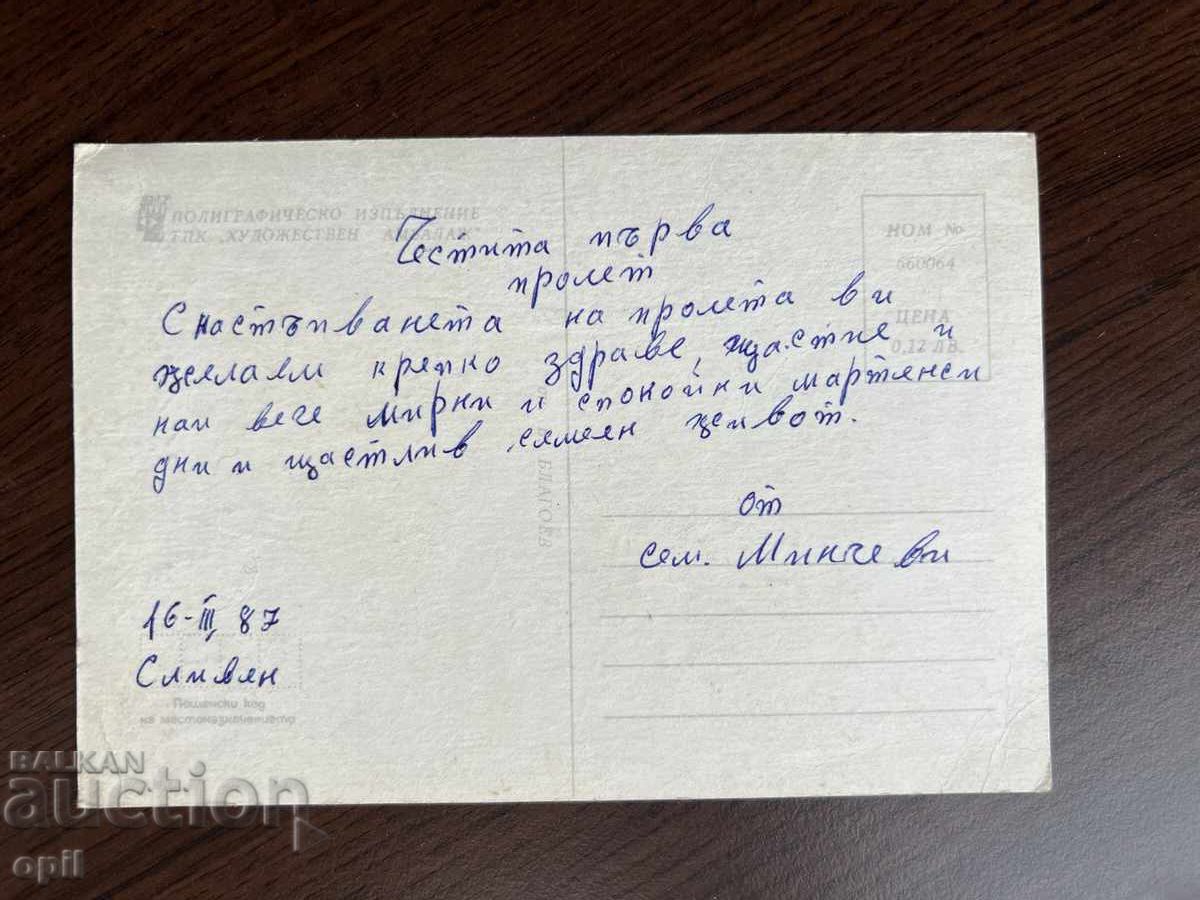 ПОЛИГРАФИЧЕСКО ИЗПЪЛНЕНИЕ
ТПК „ХУДОЖЕСТВЕН АМБАЛАЖ"
НОМ №
660064
ЦЕНА
0,12 ЛВ.
Честита първа
пролет
С настъпванета на пролета ви
желаем крепко здраве, щастие и
най вече мирни и спокойни мартенси
дни и щастлив семеен живот.
от
сем. Минчеви
16-III, 87
Сливен
Пощенски код
на местоназначението
БЛАГОЕВ
BALKAN
auction
opil